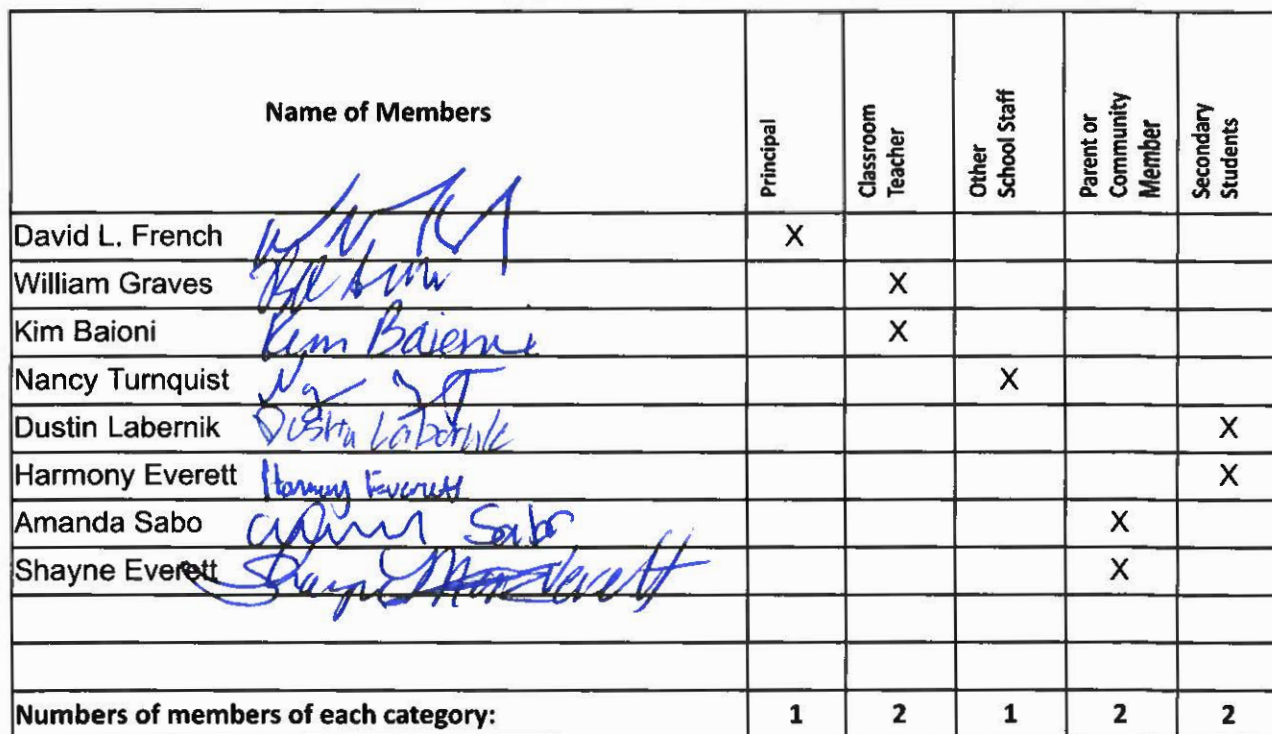 Name of Members
Principal
Classroom
Teacher
Other
School Staff
Parent or
Community
Member
Secondary
Students
David L. French X
William Graves X
Kim Baioni Kim Baioni X
Nancy Turnquist X
Dustin Labernik Dustin Labernik X
Harmony Everett Harmony Everett X
Amanda Sabo Sabo X
Shayne Everett X
Numbers of members of each category: 1 2 1 2 2